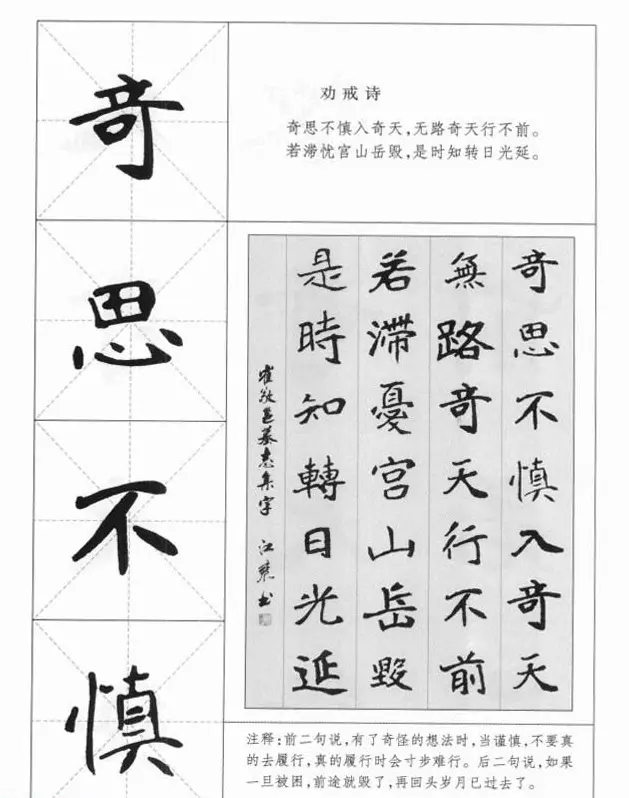 奇
思
不
慎
劝戒诗
奇思不慎入奇天，无路奇天行不前。
若滞忧宫山岳毁，是时知转日光延。
奇思不慎入奇天
無路奇天行不前
若滯憂宮山岳毀
是時知轉日光延
崔敬邕墓志集字
注释：前二句说，有了奇怪的想法时，当谨慎，不要真
的去履行，真的履行时会寸步难行。后二句说，如果
一旦被困，前途就毁了，再回头岁月已过去了。